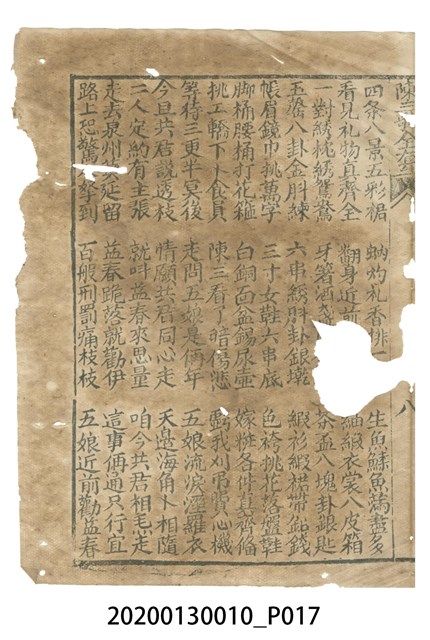 陳三歌全集
八
四条八景五彩裙 蚋灼礼香排一 生魚鱻魚滿盡多
看見礼物真齊全 翻身近前 紬緞衣裳八皮箱
一對綉枕綉鴛鴦 牙箸酒 茶盃八塊卦銀匙
玉簪八卦金斗練 六串綉斗卦銀墜 緞衫緞裙帶鉛錢
帳眉鏡巾挑萬字 三寸女鞋六串底 色袴挑花落盤鞋
脚桶腰桶打花箍 白銅面盆錫尿壺 嫁粧各件真齊備
挑工轎下卜食員 陳三看了暗傷悲 虧我刈吊費心機
等待三更半冥後 走問五娘是侢年 五娘流淚溼羅衣
今旦共君說透枝 情願共君同心走 天邊海角卜相隨
二人定約有主張 就叫益春來思量 咱今共君相毛走
走去泉州延留 益春跪落就勸伊 這事侢通只行宜
路上恐驚拏到 百般刑罰痛枝枝 五娘近前勸益春
20200130010_P017